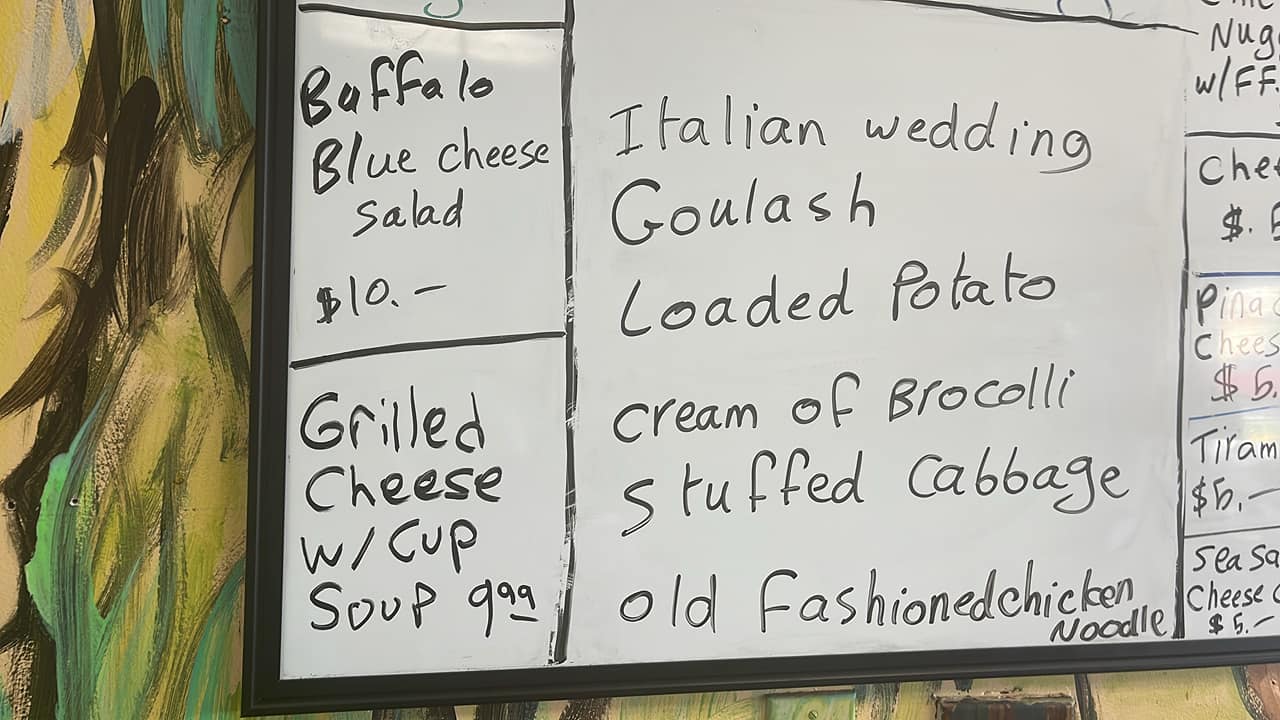 Buffalo
Blue cheese
salad
$10.-
Grilled
Cheese
w/ CUP
SOUP 9.99
Italian wedding
Goulash
Loaded Potato
cream of Brocolli
stuffed Cabbage
old Fashioned chicken
Noodle
w/FF.
$.
$5.
$5.-
Cheese
$5.-